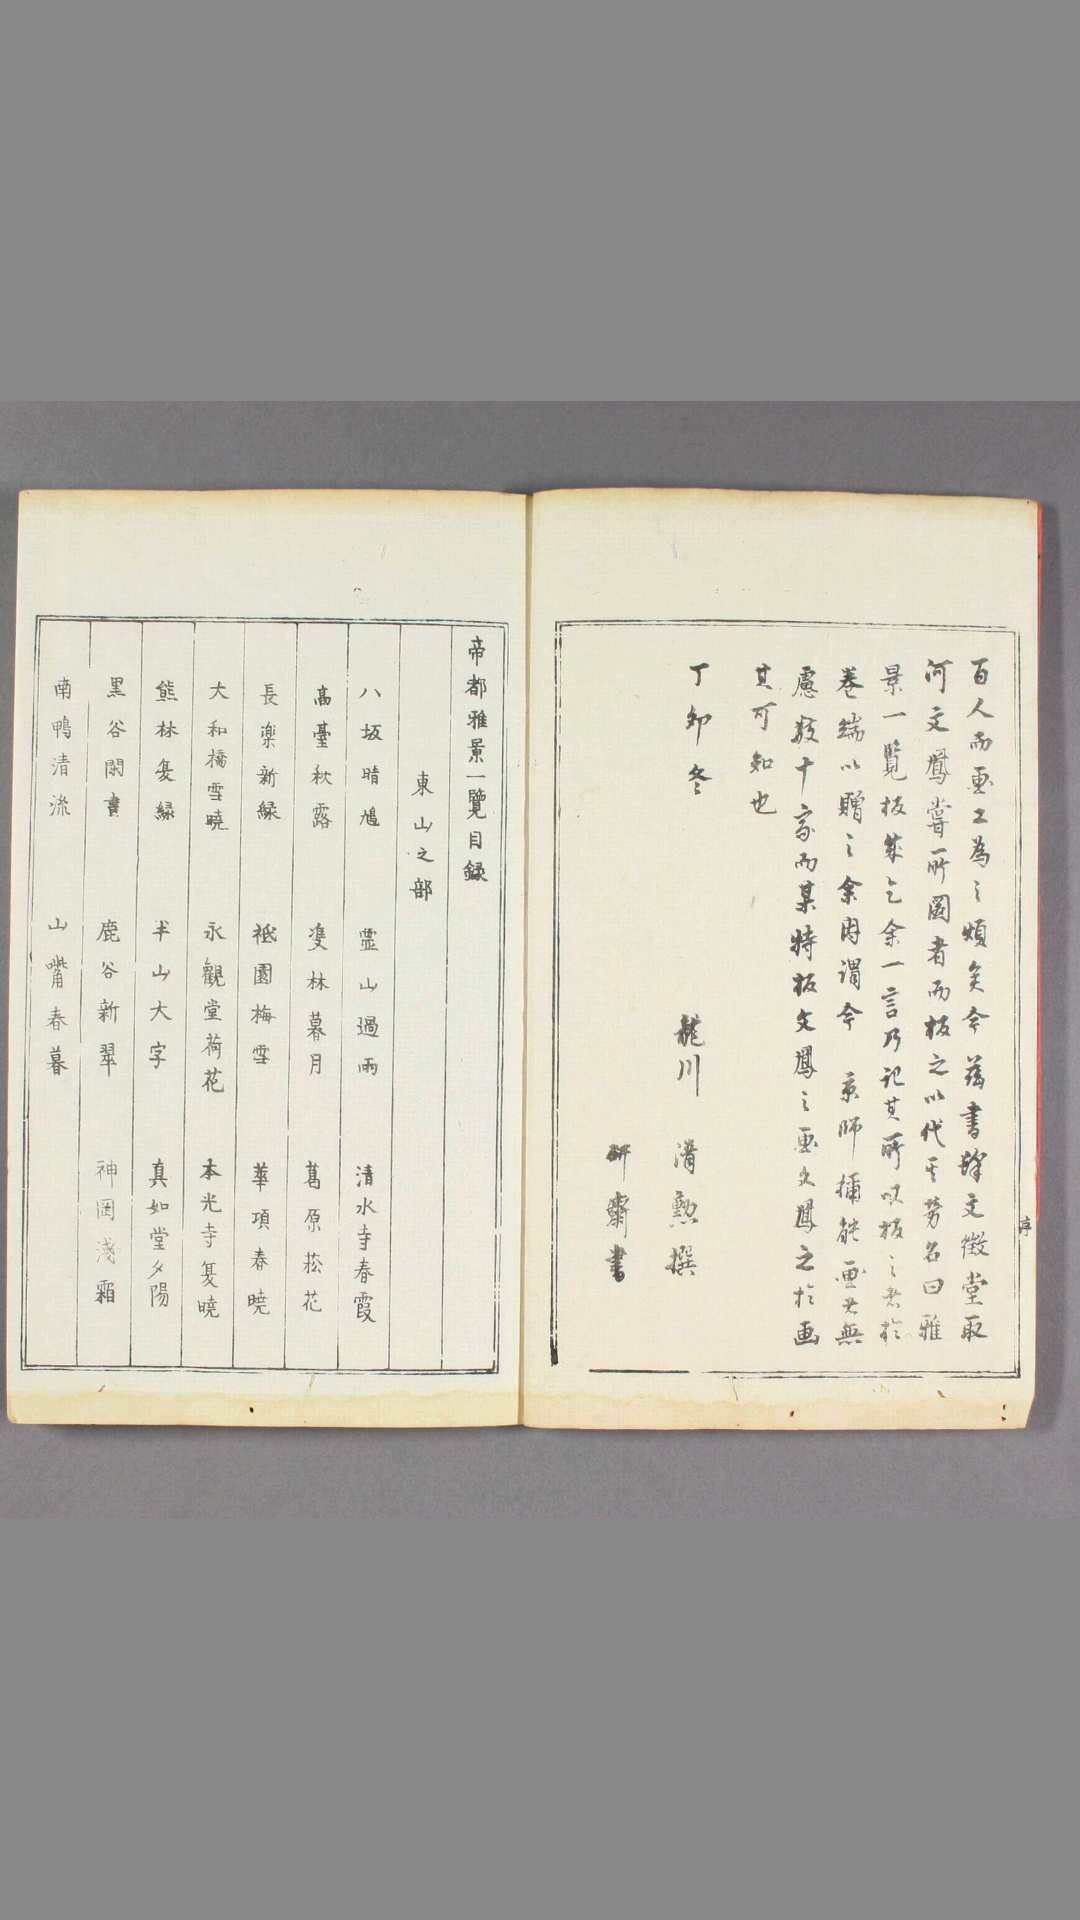 百人而画工為之煩矣今茲書肆文徵堂取
河文鳳嘗所図者而板之以代其労名曰雅
景一覧板成乞余一言乃記其所以板之者於
巻端以贈之余因謂今 京師擅能画者無
慮数十家而某特板文鳳之画文鳳之於画
其可知也
丁卯冬
龍川 清勲撰
研齋書
序
帝都雅景一覽目録
東山之部
八坂晴鳩 霊山過雨 清水寺春霞
高臺秋露 双林暮月 葛原菘花
長楽新緑 祗園梅雪 華頂春曉
大和橋雪曉 永觀堂荷花 本光寺夏曉
熊林夏緑 半山大字 真如堂夕陽
黒谷閑晝 鹿谷新翠 神岡淺霜
南鴨清流 山嘴春暮